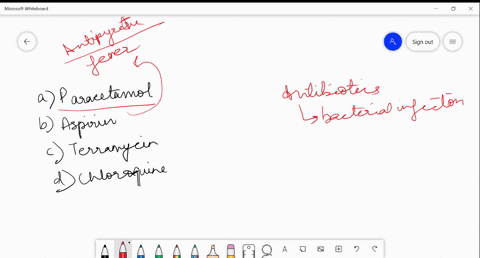 Microsoft Whiteboard
Sign out
Antipyretic
fever
a) Paracetamol
b) Aspirin
c) Terramycin
d) Chloroquine
Antibiotics
↳ bacterial infection